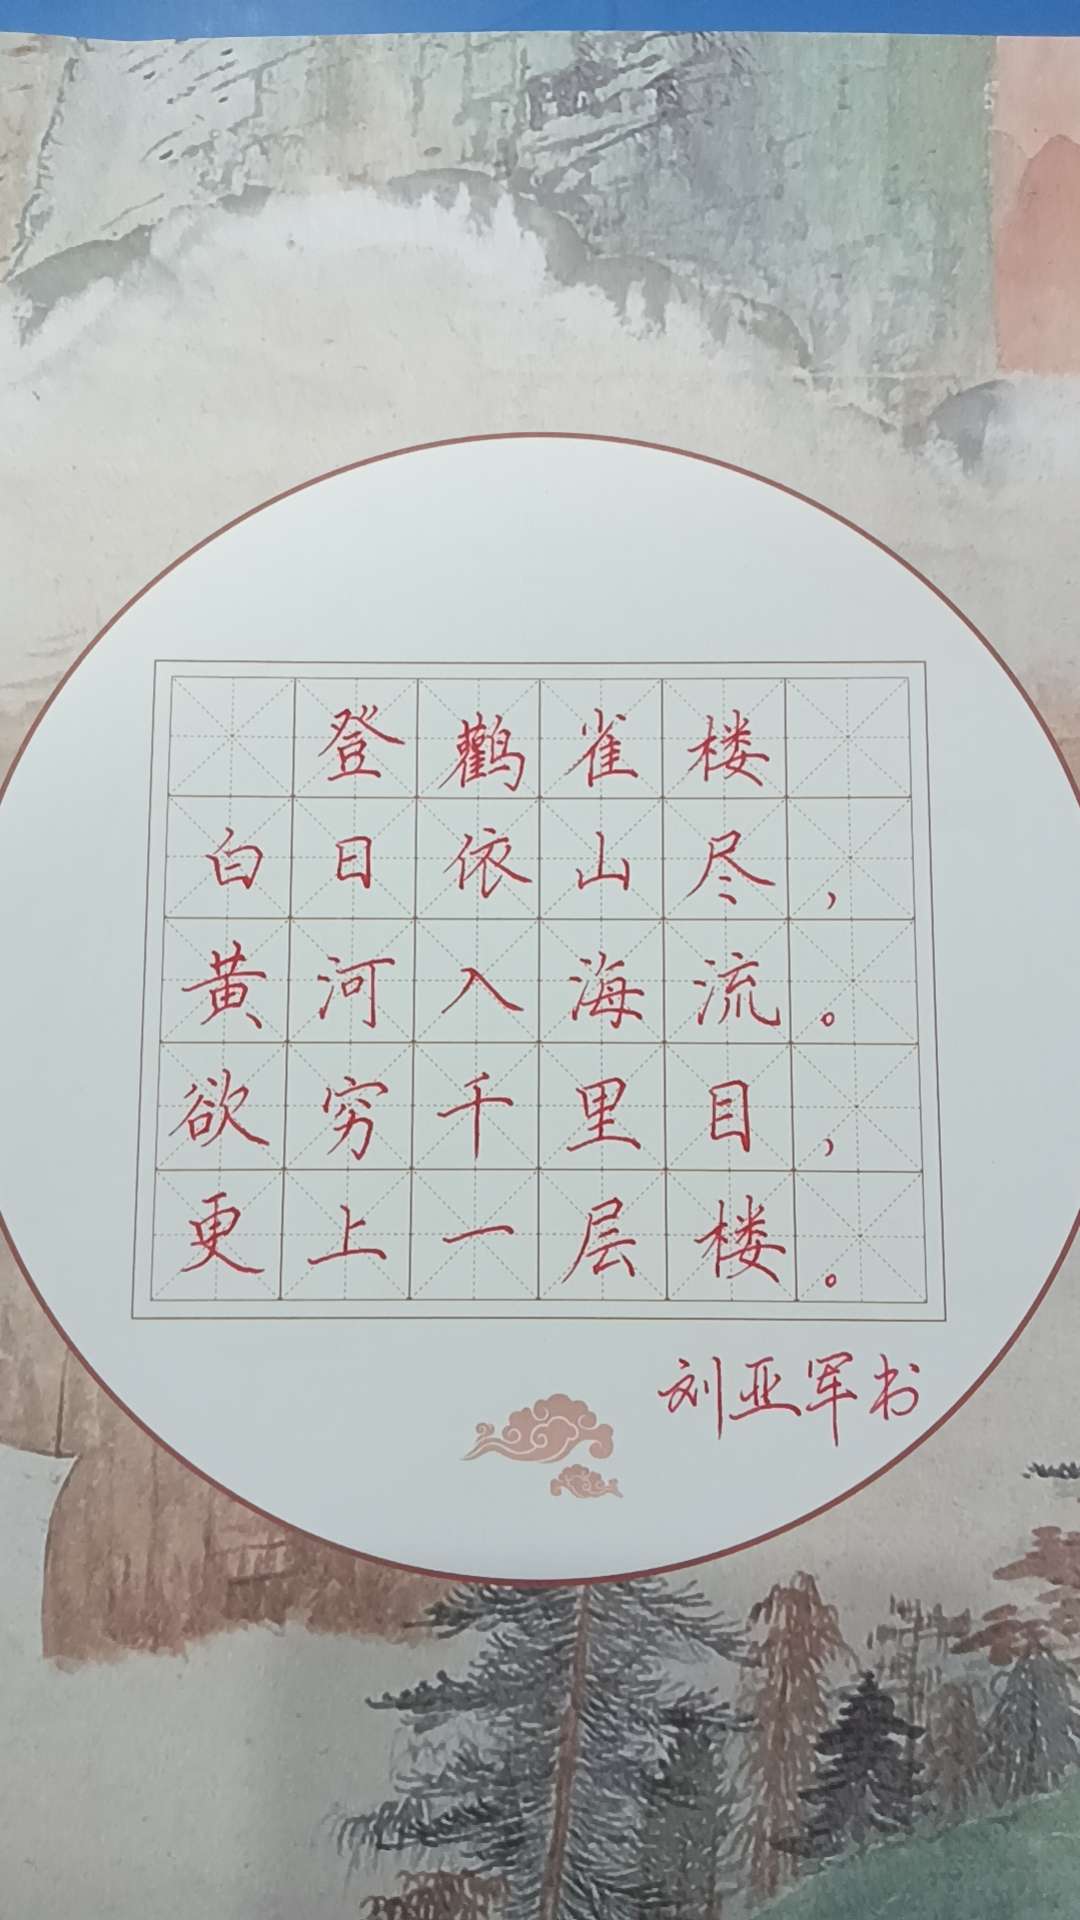 登鹳雀楼
白日依山尽，
黄河入海流。
欲穷千里目，
更上一层楼。
刘亚军书